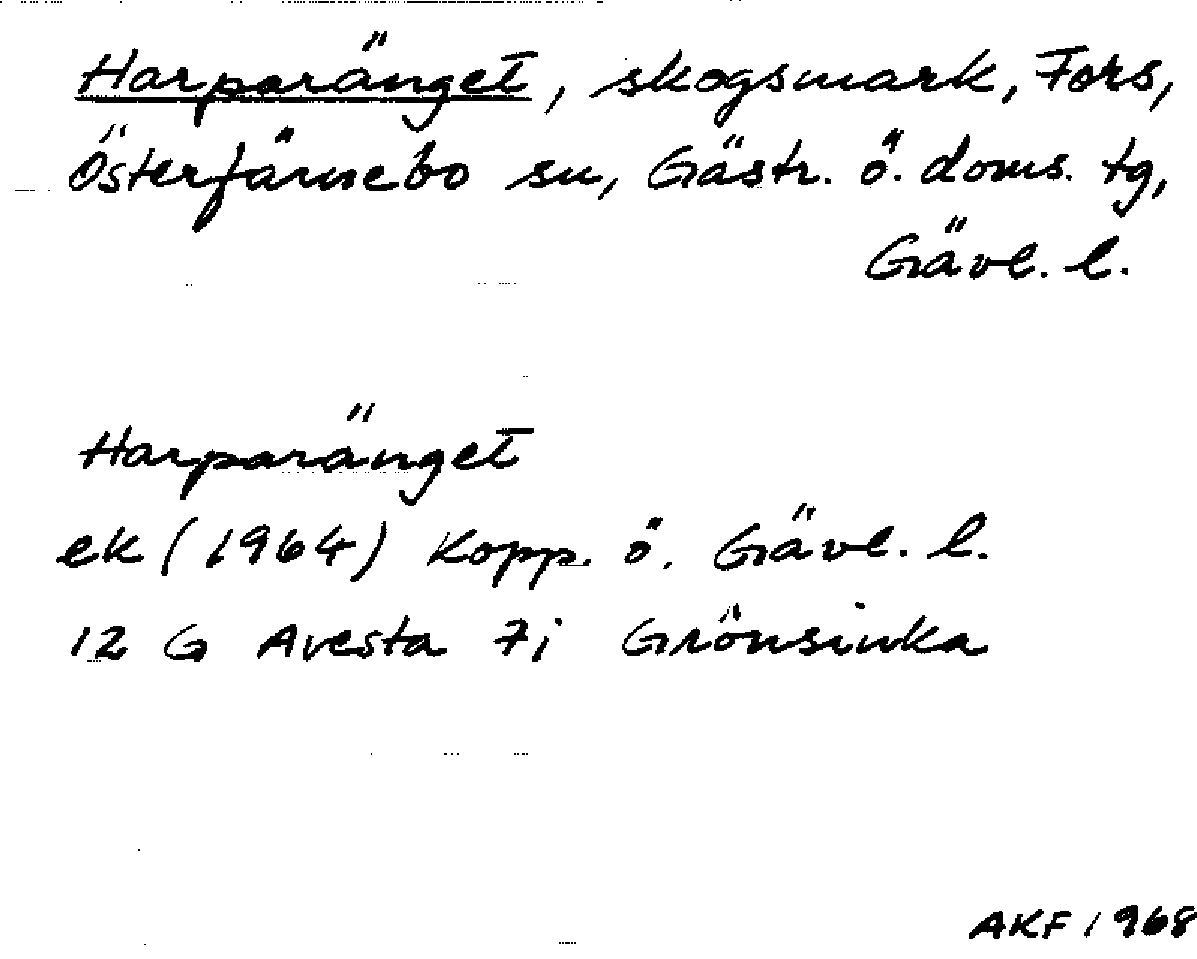 Harparänget, skogsmark, Fors,
Österfärnebo sn, Gästr. ö. doms. tg,
Gävl. l.
Harparänget
ek (1964) Kopp. o. Gävl. l.
12 G Avesta 7i Grönsinka
AKF 1968